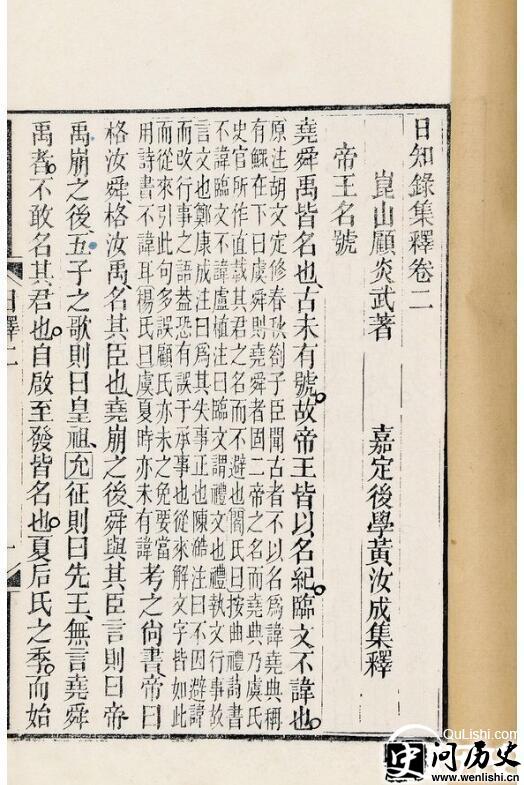 日知錄集釋卷二
崑山顧炎武著　嘉定後學黃汝成集釋
帝王名號
堯舜禹皆名也古未有號故帝王皆以名紀臨文不諱也
原注胡文定修春秋劄子臣聞古者不以名為諱堯典稱
有鰥在下曰虞舜則堯舜者固二帝之名而堯典乃虞氏
史官所作直載其君之名而不避也閻氏曰按曲禮詩書
不諱臨文不諱盧植注曰臨文謂禮文也禮執文行事故
言文也鄭康成注曰為其失事正也陳澔注曰不因避諱
而改行事之語葢恐有誤于承事也從來解文字皆如此
而從來引此句多誤顧氏亦未之免要當
用詩書不諱耳楊氏曰虞夏時亦未有諱
考之尚書帝曰
格汝舜格汝禹名其臣也堯崩之後舜與其臣言則曰帝
禹崩之後五子之歌則曰皇祖允征則曰先王無言堯舜
禹者不敢名其君也自啟至發皆名也夏后氏之季而始
釋二
QuLishi.com
问历史
www.wenlishi.cn